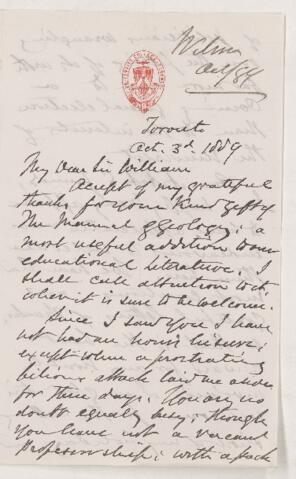 Wilson
Oct/89
Toronto
Oct. 3d 1889
My Dear Sir William
Accept of my grateful
thanks for your kind gift of
The Manual of Geology: a
most useful addition to our
educational literature. I
shall call attention to it,
where it is sure to be welcome.
Since I saw you I have
not had an hour's leisure;
except when a prostrating
bilious attack laid me aside
for three days. You are no
doubt equally busy; though
you have not a vacant
Professorship; with a pack